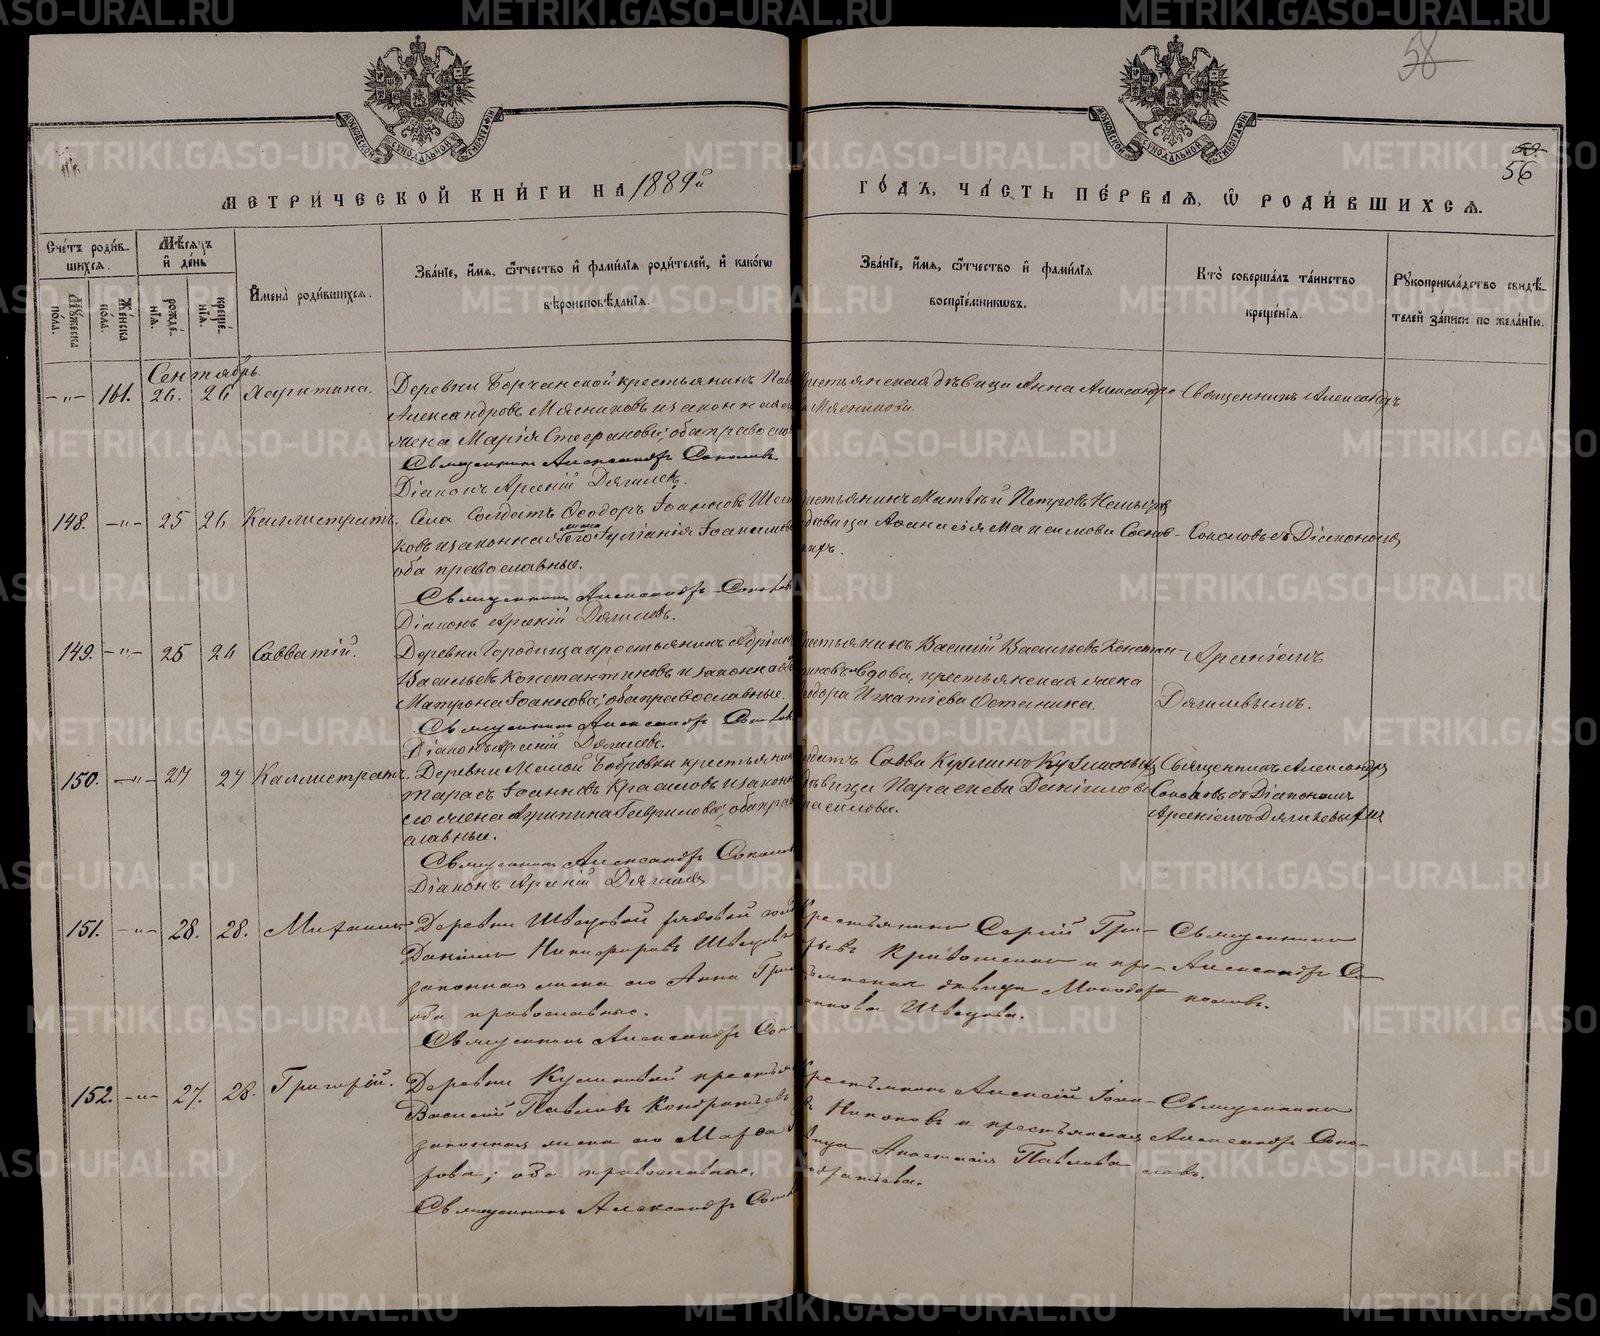 58
56
МЕТРИ́ЧЕСКОЙ КНИ́ГИ НА 1889й
ГО́ДЪ, ЧА́СТЬ ПЕ́РВАѦ, Ѡ РОДИ́ВШИХСѦ.
Сче́тъ роди́в-
шихсѧ.
Мѣ́сѧцъ
и҆ де́нь
Мꙋ́жеска по́ла.
Же́нска по́ла.
рожде́нїѧ.
креще́нїѧ.
И҆мена̀ роди́вшихсѧ.
Зва́нїе, и҆́мѧ, ѻ҆́тчество и҆ фами́лїѧ роди́телей, и҆ како́гѡ
вѣроисповѣ́данїѧ.
Зва́нїе, и҆́мѧ, ѻ҆́тчество и҆ фами́лїѧ
воспрїе́мникѡвъ.
Кто̀ соверша́лъ та́инство
креще́нїѧ.
Рꙋкоприкла́дство свидѣ́-
телей за́писи по жела́нїю.
Сентябрь.
-"- 161. 26. 26 Харитина.
Деревни Борчанской крестьянинъ Пав
Александровъ Мясниковъ и законная
жена Марія Стефанова; оба правосла
Священникъ Александръ Соколовъ
Діаконъ Арсеній Дягилевъ.
Крестьянская дѣвица Анна Александро
ва Мясникова.
Священникъ Александръ
148. -"- 25 26 Каллистратъ.
Села Солдатъ Ѳеодоръ Іоанновъ
ковъ и законная жена его Іуліанія Іоакимова
оба православные.
Священникъ Александръ Соколовъ
Діаконъ Арсеній Дягилевъ.
Крестьянинъ Матѳей Петровъ
вдовица Аѳанасія Максимова
Соколовъ съ Діакономъ
149. -"- 25 27 Савватій.
Деревни Городища крестьянинъ Адріанъ
Васильевъ Константиновъ и законная
Матрона Іоаннова; оба православные.
Священникъ Александръ Соколовъ
Діаконъ Арсеній Дягилевъ.
Крестьянинъ Василій Васильевъ Констан-
тиновъ и вдова, крестьянская жена
Ѳеодора Игнатіева Останина.
Арсеніемъ
Дягилевымъ.
150. -"- 27 27 Каллистратъ.
Деревни Малой Бобровки крестьянинъ
Тарасъ Іоанновъ Красиловъ и законн
его жена Агрипина Гаврилова; оба право
славные.
Священникъ Александръ Соколовъ
Діаконъ Арсеній Дягилевъ
Солдатъ Савва Кузминъ Кузминыхъ
дѣвица Параскева Даніилова
Красилова.
Священникъ Александръ
Соколовъ съ Діакономъ
Арсеніемъ Дягилевымъ
151. -"- 28. 28. Михаилъ
Деревни Швецовой рядовой
Даніилъ Никифоровъ Швецовъ
законная жена его Анна Григ
оба православные.
Священникъ Александръ Сок
Крестьянинъ Сергій Гри-
горьевъ Кривошеинъ и кре-
стьянская дѣвица Минодора
Іоаннова Швецова.
Священникъ
Александръ Со-
коловъ.
152. -"- 27. 28. Григорій.
Деревни Куликовой крестьян
Василій Павловъ Кондратьевъ
законная жена его Марѳа
рова; оба православные.
Священникъ Александръ Сокол
Крестьянинъ Алексій Іоан-
новъ Никоновъ и крестьянская
дѣвица Анастасія Павлова
Кондратьева.
Священникъ
Александръ Соко-
ловъ.
METRIKI.GASO-URAL.RU